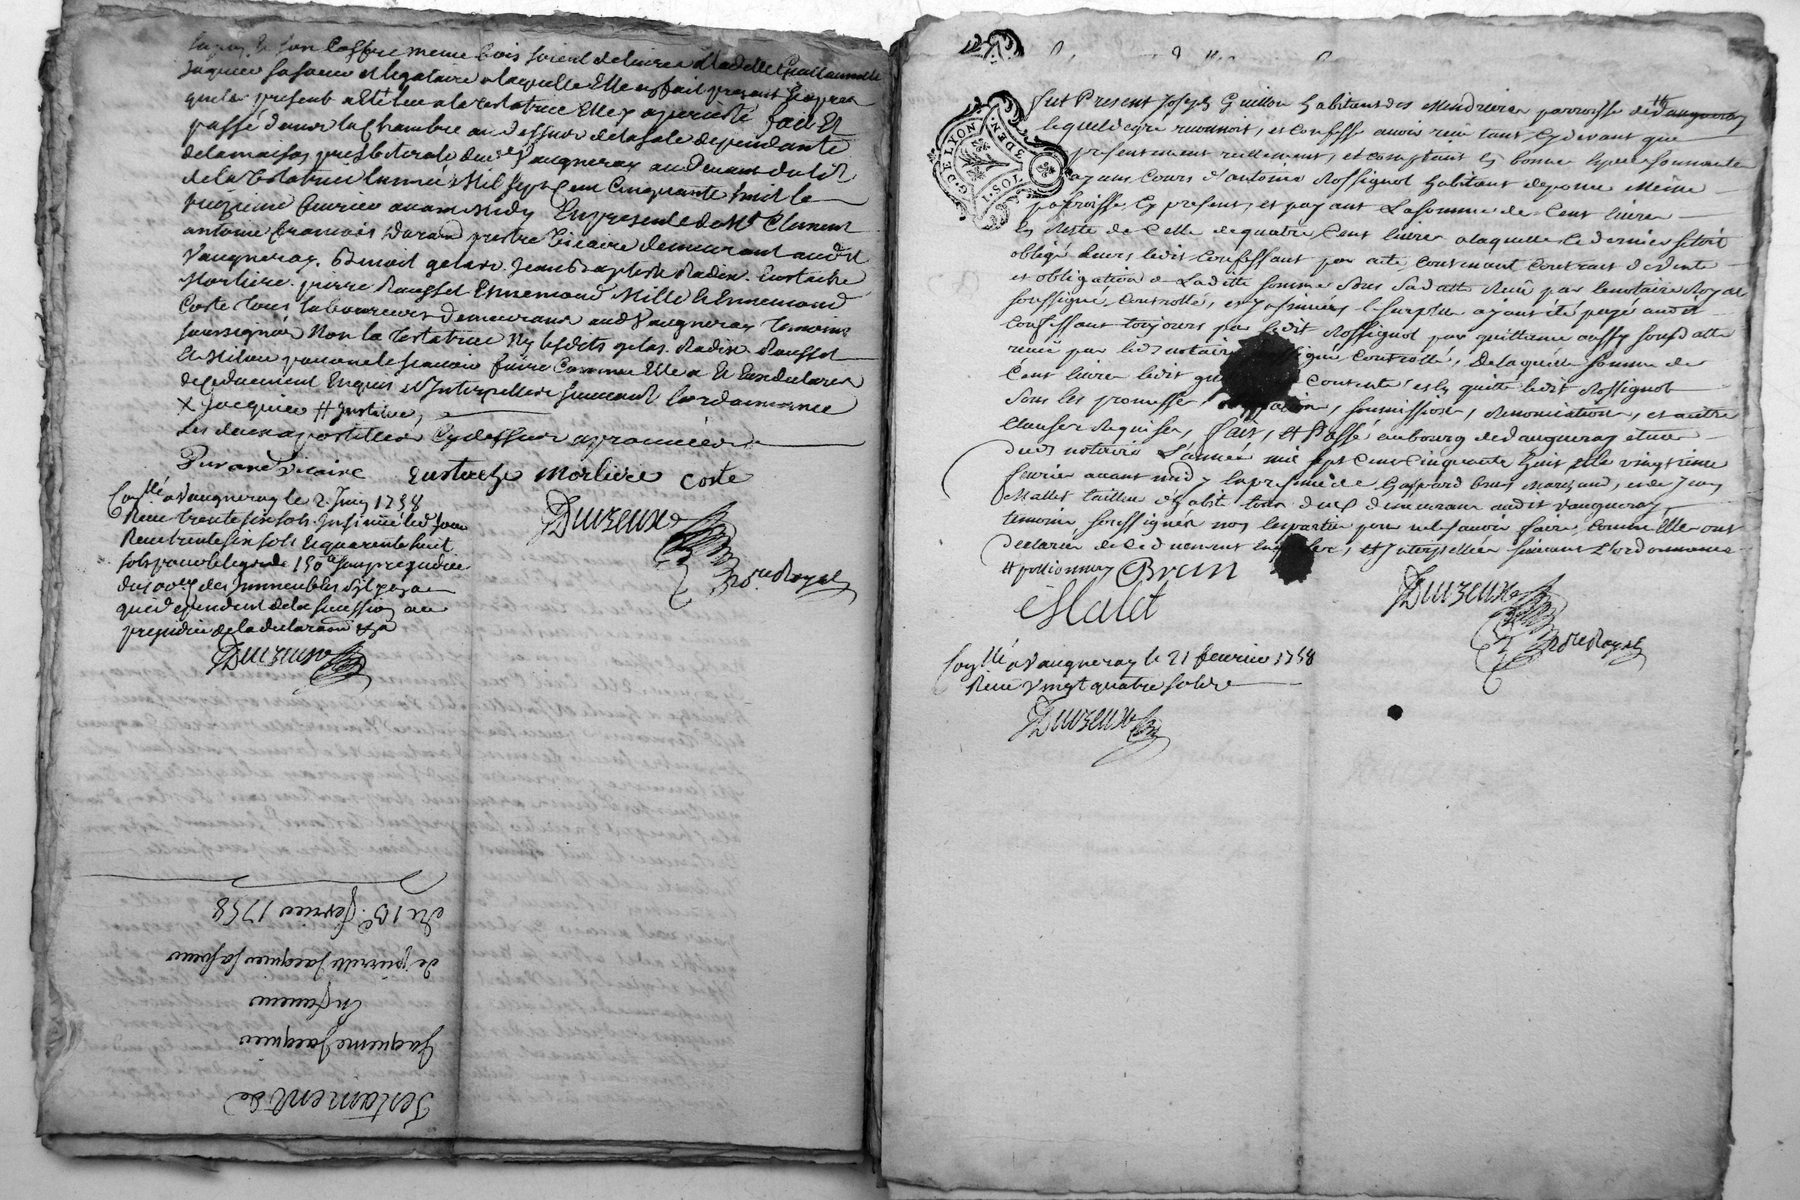 son Coffre meme bois soient delivrés a ladelle
Jaquier sa soeur et legataire a laquelle Elle en fait present Et apres
que le present a Eté leu a la testatrice Elle y a persisté fait Et
passé dans la Chambre au dessus de la sale dependante
de la maison presbiterale dud Vaugneray au devant du lit
de la testatrice l'année Mil sept Cent Cinquante huit le
fevrier avant midy En presence de Mr Clement
antoine francois Durand prestre Vicaire demeurant aud
Vaugneray. Benoit gelas. Jean Baptiste Radix. Eustache
Morliere. pierre Rousset Ennemond Mille & Ennemond
Coste tous laboureurs demeurant aud Vaugneray temoins
soussignés Non la testatrice Ny lesdits gelas. Radix. Rousset
Et Mille pour ne le scavoir faire Comme Elle a & Eux declarer
de ce duement Enquis et Interpellés suivant l'ordonnance
X Jacquier # Justice,
les deux apostilles Cy dessus approuvées
Durand Vicaire Eustache Morliere Coste
DuvZeux
no.re Royal
Con.llé a Vaugneray le 2 Juin 1758
Receu trente six sols. Insinué led Jour
Receu trente six sols Et quarante huit
sols pour le legs de 150 # sans prejudice
du 100e des Immeubles s'il y a
qui dependent de la succession au
prejudice de la declaration
DuvZeux
Testament de
Jaqueme Jacquier
En faveur
de pierrette Jacquier sa soeur
du 15e fevrier 1758
G. DE LYON
3 DEN.
10 S. 1
Fut Present Joseph Guillon habitant des Mendrieres parroisse de Vaugneray
lequel de gre reconnoit, et confesse avoir receu tant cydevant que
presentement reellement, et comptant En bonne Espece sonnante
ayant Cours d'antoine Rossignol habitant de porre Meme
parroisse Cy present, et payant La somme de Cent livres
En Reste de Celle de quatre Cent livres a laquelle Ce dernier s'etoit
obligé Envers ledit Confessant par acte Contenant Contrat de vente
et obligation de Ladite somme Sous Sa datte Receu par le notaire Royal
soussigné, Controllé, et Insinué, le surplus ayant été payé audit
Confessant toujours par ledit Rossignol par quittance aussy sous datte
receu par led notaire soussigné Controllé, De laquelle somme de
Cent livres ledit contente, et En quitte ledit Rossignol
Sous les promesses, soumissions, Renonciations, et autre
Clauses Requises, fait, Et Passé au bourg de Vaugneray etude
dud notaire L'année mil sept Cent Cinquante huit Et le vingtieme
fevrier avant midy En presence de Gaspard Brun Marchand, et de Jean
Mallet tailleur d'habit tous deux demeurant audit Vaugneray,
temoins soussignés non les parties pour ne le savoir faire, Comme Elles ont
declarées de ce duement Enquises, et Interpellées suivant L'ordonnance
Brun
Malet
DuvZeux
no.re Royal
Con.llé a Vaugneray le 21 fevrier 1758
Receu Vingt quatre sols
DuvZeux